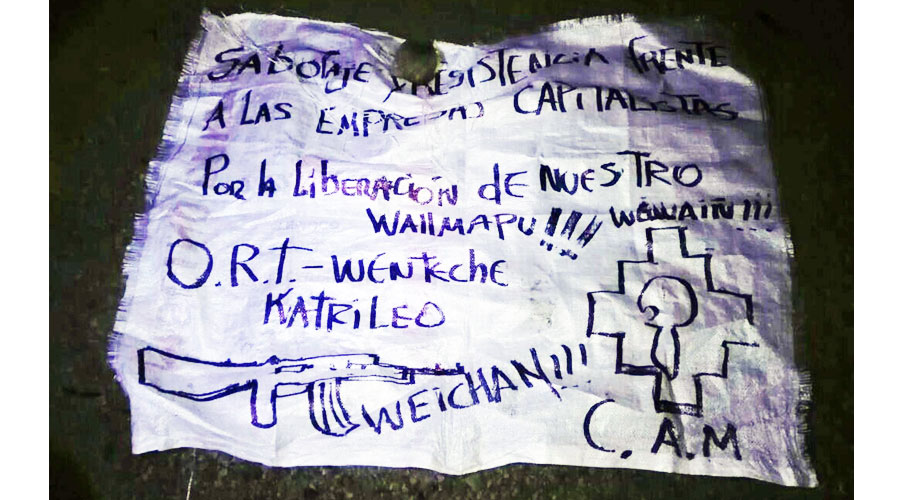 SABOTAJE Y RESISTENCIA FRENTE
A LAS EMPRESAS CAPITALISTAS
POR LA LIBERACIÓN DE NUESTRO
WALLMAPU!!!! WEWAIÑ!!!
O.R.T.-WENTECHE
KATRILEO
WEICHAN!!!
C.A.M